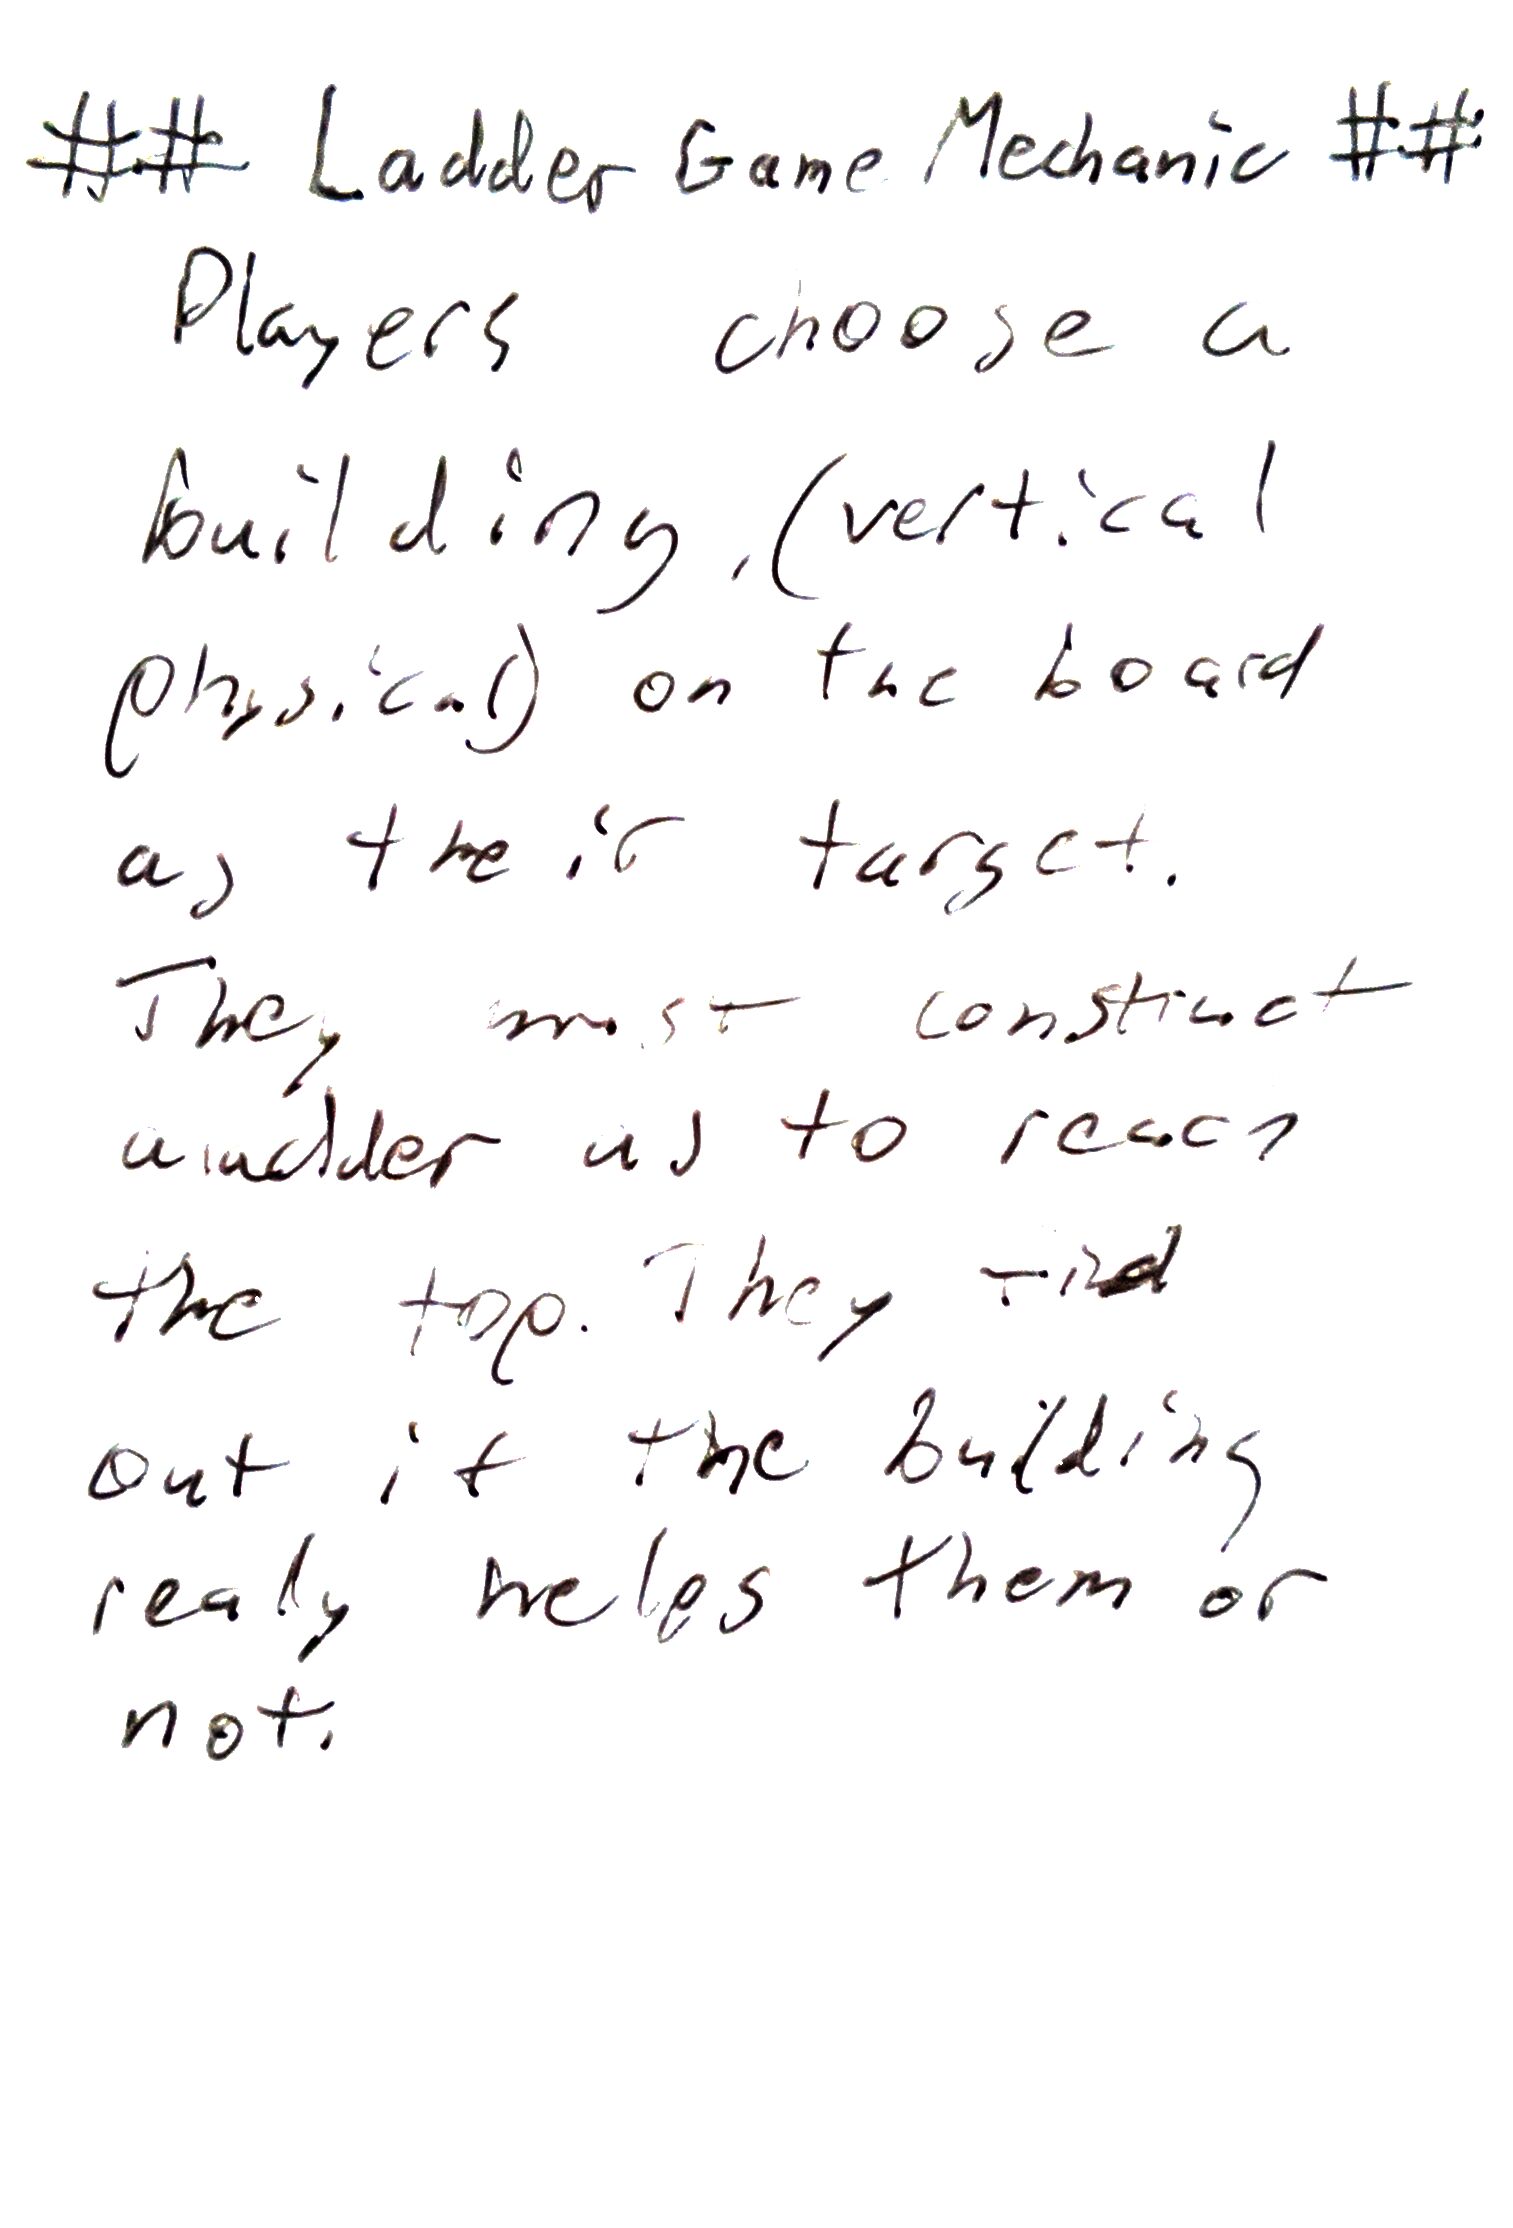 ## Ladder Game Mechanic ##
Players choose a
building, (vertical
physical) on the board
as their target.
They must construct
a ladder as to reach
the top. They find
out if the building
realy helps them or
not.